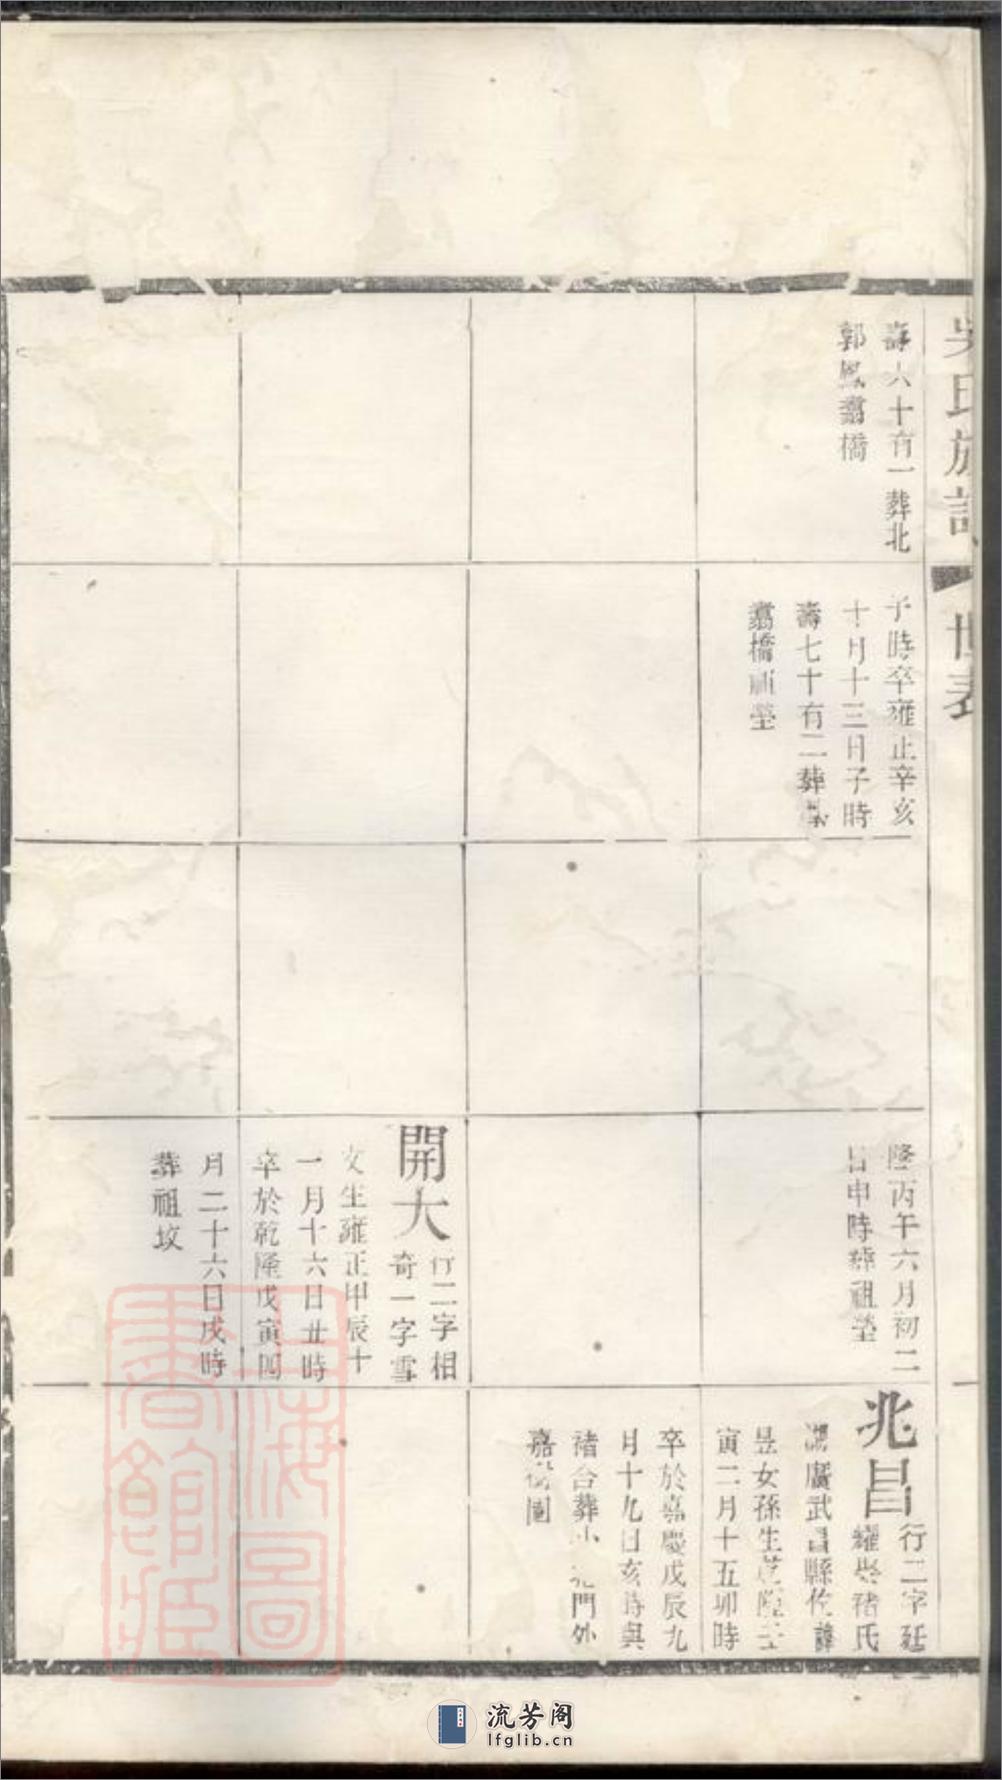 吳氏族譜
世表
壽六十有一葬北
郭鳳翥橋
子時卒雍正辛亥
十月十三日子時
壽七十有二葬鳳
翥橋祖塋
隆丙午六月初二
日申時葬祖塋
開大
行二字相
奇一字雪
文生雍正甲辰十
一月十六日丑時
卒於乾隆戊寅四
月二十六日戌時
葬祖坟
兆昌
行二字廷
耀娶褚氏
湖廣武昌縣佐諱
昱女孫生乾隆
寅二月十五卯時
卒於嘉慶戊辰九
月十九日亥時與
褚合葬小北門外
嘉 圍
上海圖書館藏
流芳阁
lfglib.cn